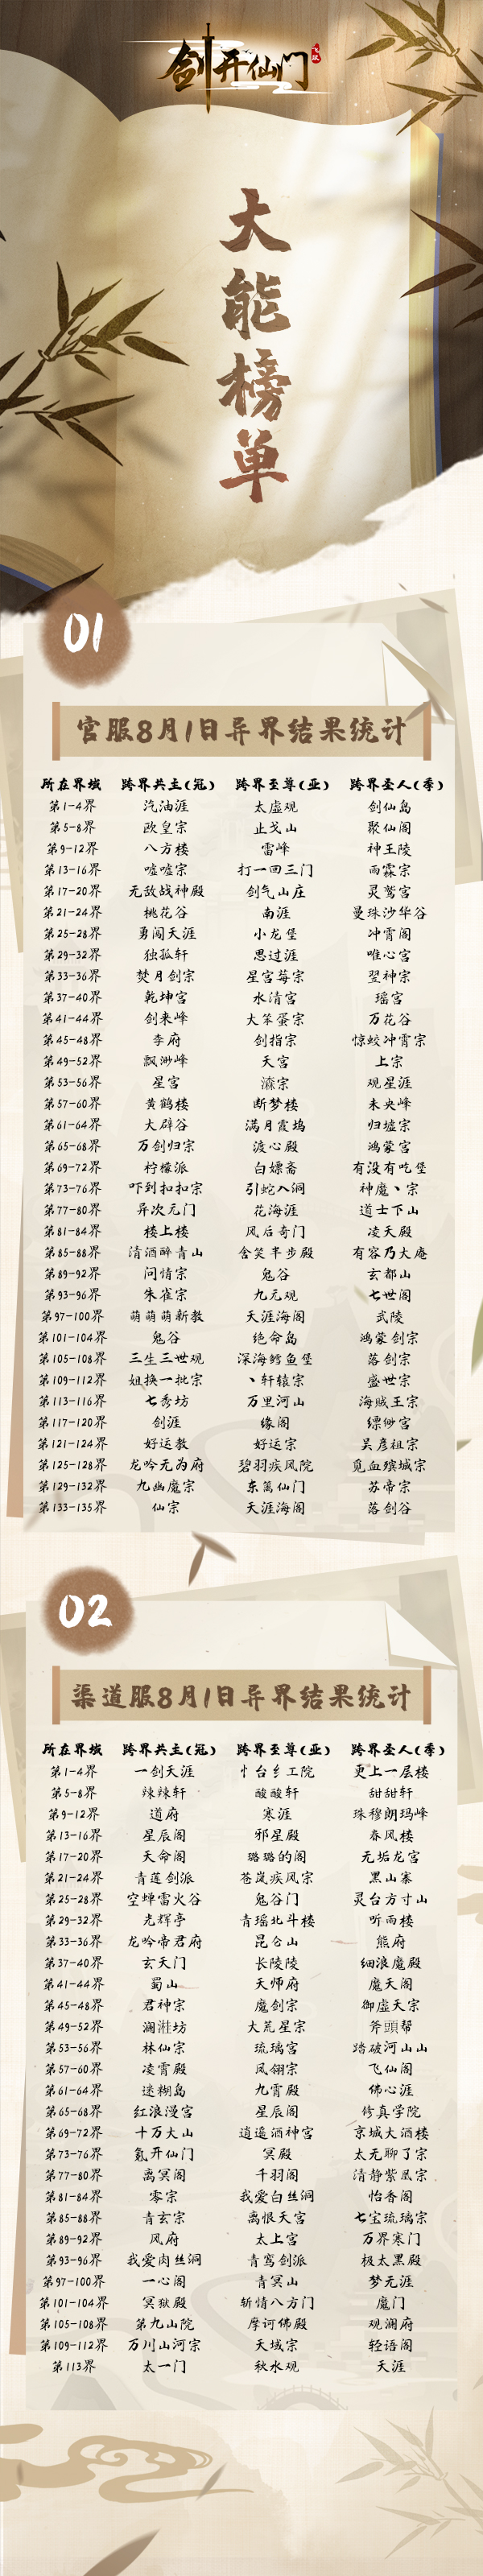 剑开仙门
飞跃
大能榜单
01
官服8月1日异界结果统计
所在界域 跨界共主(冠) 跨界至尊(亚) 跨界圣人(季)
第1-4界 汽油涯 太虚观 剑仙岛
第5-8界 欧皇宗 止戈山 聚仙阁
第9-12界 八方楼 雷峰 神王陵
第13-16界 嘘嘘宗 打一回三门 雨霖宗
第17-20界 无敌战神殿 剑气山庄 灵鹫宫
第21-24界 桃花谷 南涯 曼珠沙华谷
第25-28界 勇闯天涯 小龙堡 冲霄阁
第29-32界 独孤轩 思过涯 唯心宫
第33-36界 焚月剑宗 星宫莓宗 翌神宗
第37-40界 乾坤宫 水清宫 瑶宫
第41-44界 剑来峰 大笨蛋宗 万花谷
第45-48界 李府 剑指宗 惊蛟冲霄宗
第49-52界 飘渺峰 天宫 上宗
第53-56界 星宫 宗 观星涯
第57-60界 黄鹤楼 断梦楼 未央峰
第61-64界 大辟谷 满月霞坞 归墟宗
第65-68界 万剑归宗 渡心殿 鸿蒙宫
第69-72界 柠檬派 白嫖斋 有没有吃堡
第73-76界 吓到扣扣宗 引蛇入洞 神魔丶宗
第77-80界 异次元门 花海涯 道士下山
第81-84界 楼上楼 风后奇门 凌天殿
第85-88界 清酒醉青山 含笑半步殿 有容乃大庵
第89-92界 问情宗 鬼谷 玄都山
第93-96界 朱雀宗 九元观 七世阁
第97-100界 萌萌萌新教 天涯海阁 武陵
第101-104界 鬼谷 绝命岛 鸿蒙剑宗
第105-108界 三生三世观 深海鳕鱼堡 落剑宗
第109-112界 姐换一批宗 丶轩辕宗 盛世宗
第113-116界 七秀坊 万里河山 海贼王宗
第117-120界 剑涯 缘阁 缥缈宫
第121-124界 好运教 好运宗 吴彦祖宗
第125-128界 龙吟无为府 碧羽疾风院 觅血殡城宗
第129-132界 九幽魔宗 东篱仙门 苏帝宗
第133-135界 仙宗 天涯海阁 落剑谷
02
渠道服8月1日异界结果统计
所在界域 跨界共主(冠) 跨界至尊(亚) 跨界圣人(季)
第1-4界 一剑天涯 忄台纟工院 更上一层楼
第5-8界 辣辣轩 酸酸轩 甜甜轩
第9-12界 道府 寒涯 珠穆朗玛峰
第13-16界 星辰阁 邪星殿 春风楼
第17-20界 天命阁 璐璐的阁 无垢龙宫
第21-24界 青莲剑派 苍岚疾风宗 黑山寨
第25-28界 空蝉雷火谷 鬼谷门 灵台方寸山
第29-32界 光辉亭 青瑶北斗楼 听雨楼
第33-36界 龙吟帝君府 昆仑山 熊府
第37-40界 玄天门 长陵陵 细浪魔殿
第41-44界 蜀山 天师府 魔天阁
第45-48界 君神宗 魔剑宗 御虚天宗
第49-52界 澜滩坊 大荒星宗 斧頭帮
第53-56界 林仙宗 琉璃宫 踏破河山山
第57-60界 凌霄殿 凤翎宗 飞仙阁
第61-64界 迷糊岛 九霄殿 佛心涯
第65-68界 红浪漫宫 星辰阁 修真学院
第69-72界 十万大山 逍遥酒神宫 京城大酒楼
第73-76界 氪开仙门 冥殿 太无聊了宗
第77-80界 离冥阁 千羽阁 清静紫凰宗
第81-84界 零宗 我爱白丝洞 怡香阁
第85-88界 青玄宗 离恨天宫 七宝琉璃宗
第89-92界 风府 太上宫 万界寒门
第93-96界 我爱肉丝洞 青鸾剑派 极太黑殿
第97-100界 一心阁 青冥山 梦无涯
第101-104界 冥狱殿 斩情八方门 魔门
第105-108界 第九山院 摩诃佛殿 观澜府
第109-112界 万川山河宗 天域宗 轻语阁
第113界 太一门 秋水观 天涯